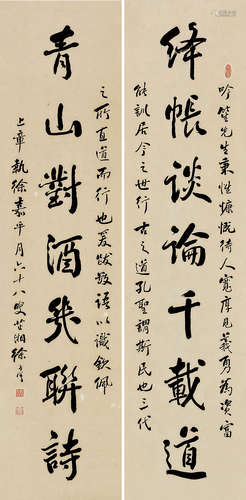 吟笙先生秉性慷慨待人寬厚見義勇為資富
絳帳談論千載道
能訓居今之世行古之道孔聖謂斯民也三代
之所直道而行也爰跋數語以識欽佩
青山對酒幾聯詩
上章執徐嘉平月六十八叟芷湘徐